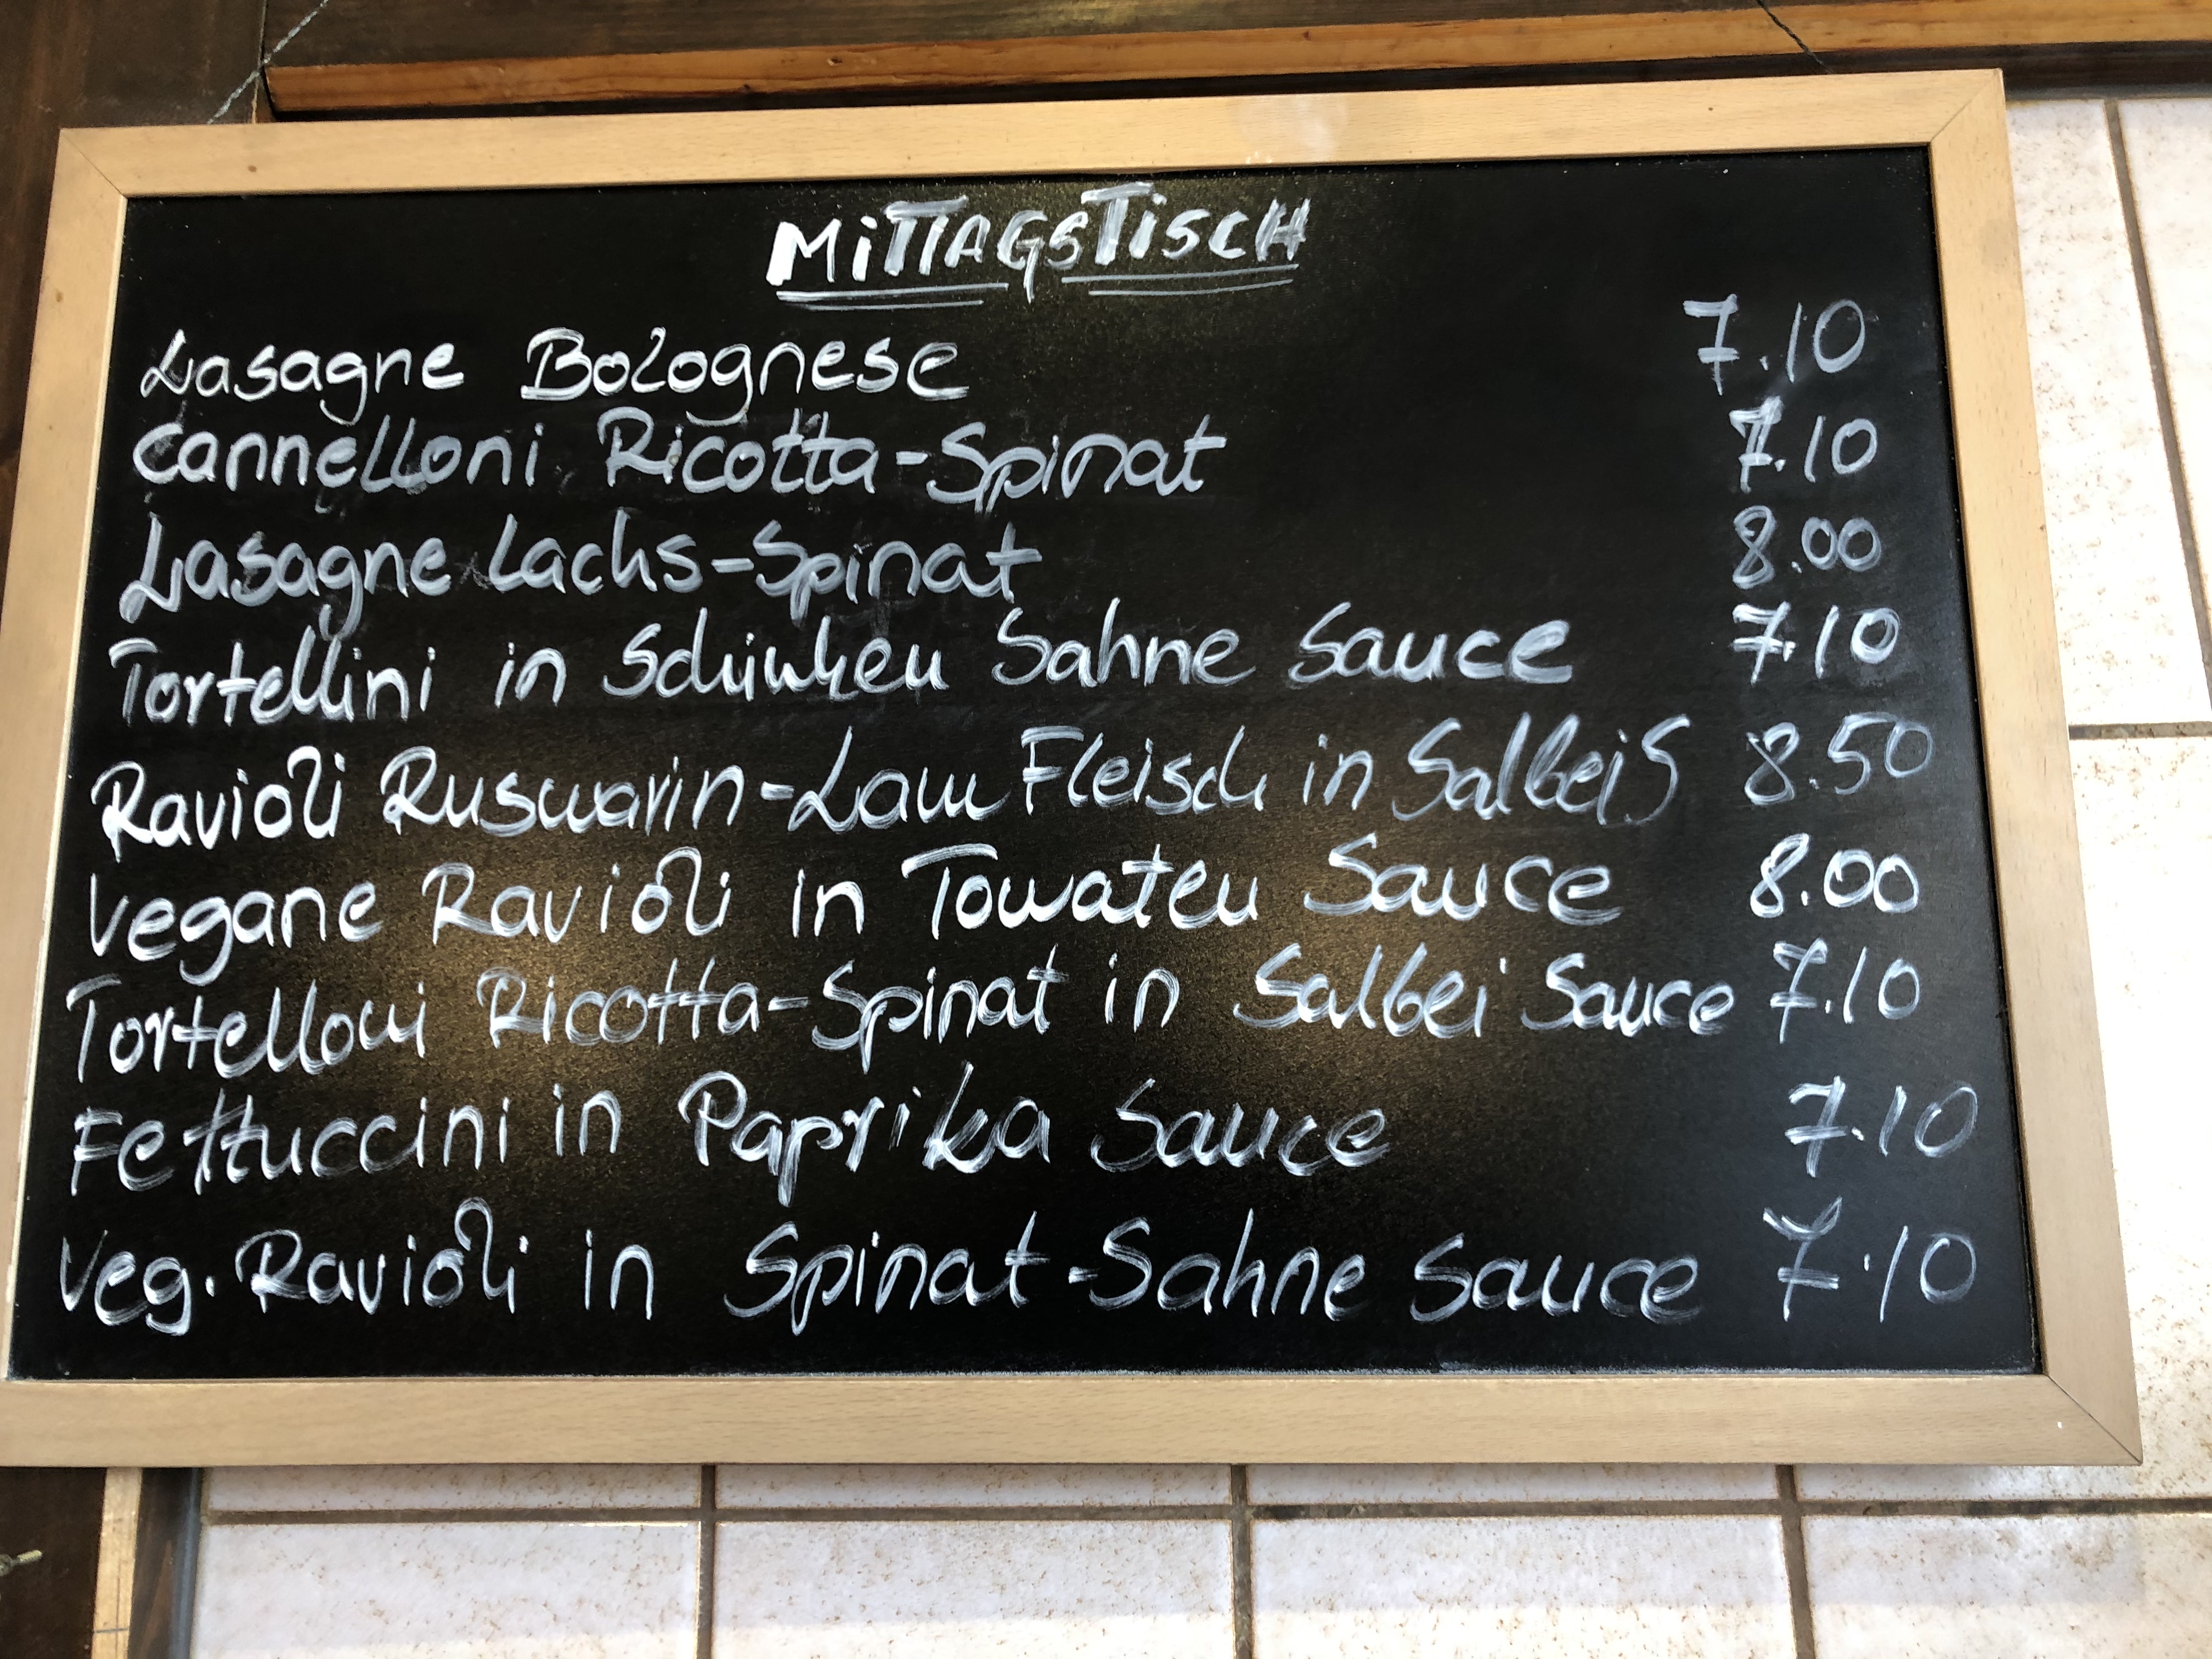 MiTTAGSTiSCH
Lasagne Bolognese 7.10
Cannelloni Ricotta-Spinat 7.10
Lasagne Lachs-Spinat 8.00
Tortellini in Schinken Sahne Sauce 7.10
Ravioli Rusmarin-Lam Fleisch in Salbei S 8.50
Vegane Ravioli in Tomaten Sauce 8.00
Tortelloni Ricotta-Spinat in Salbei Sauce 7.10
Fettuccini in Paprika Sauce 7.10
Veg. Ravioli in Spinat-Sahne Sauce 7.10